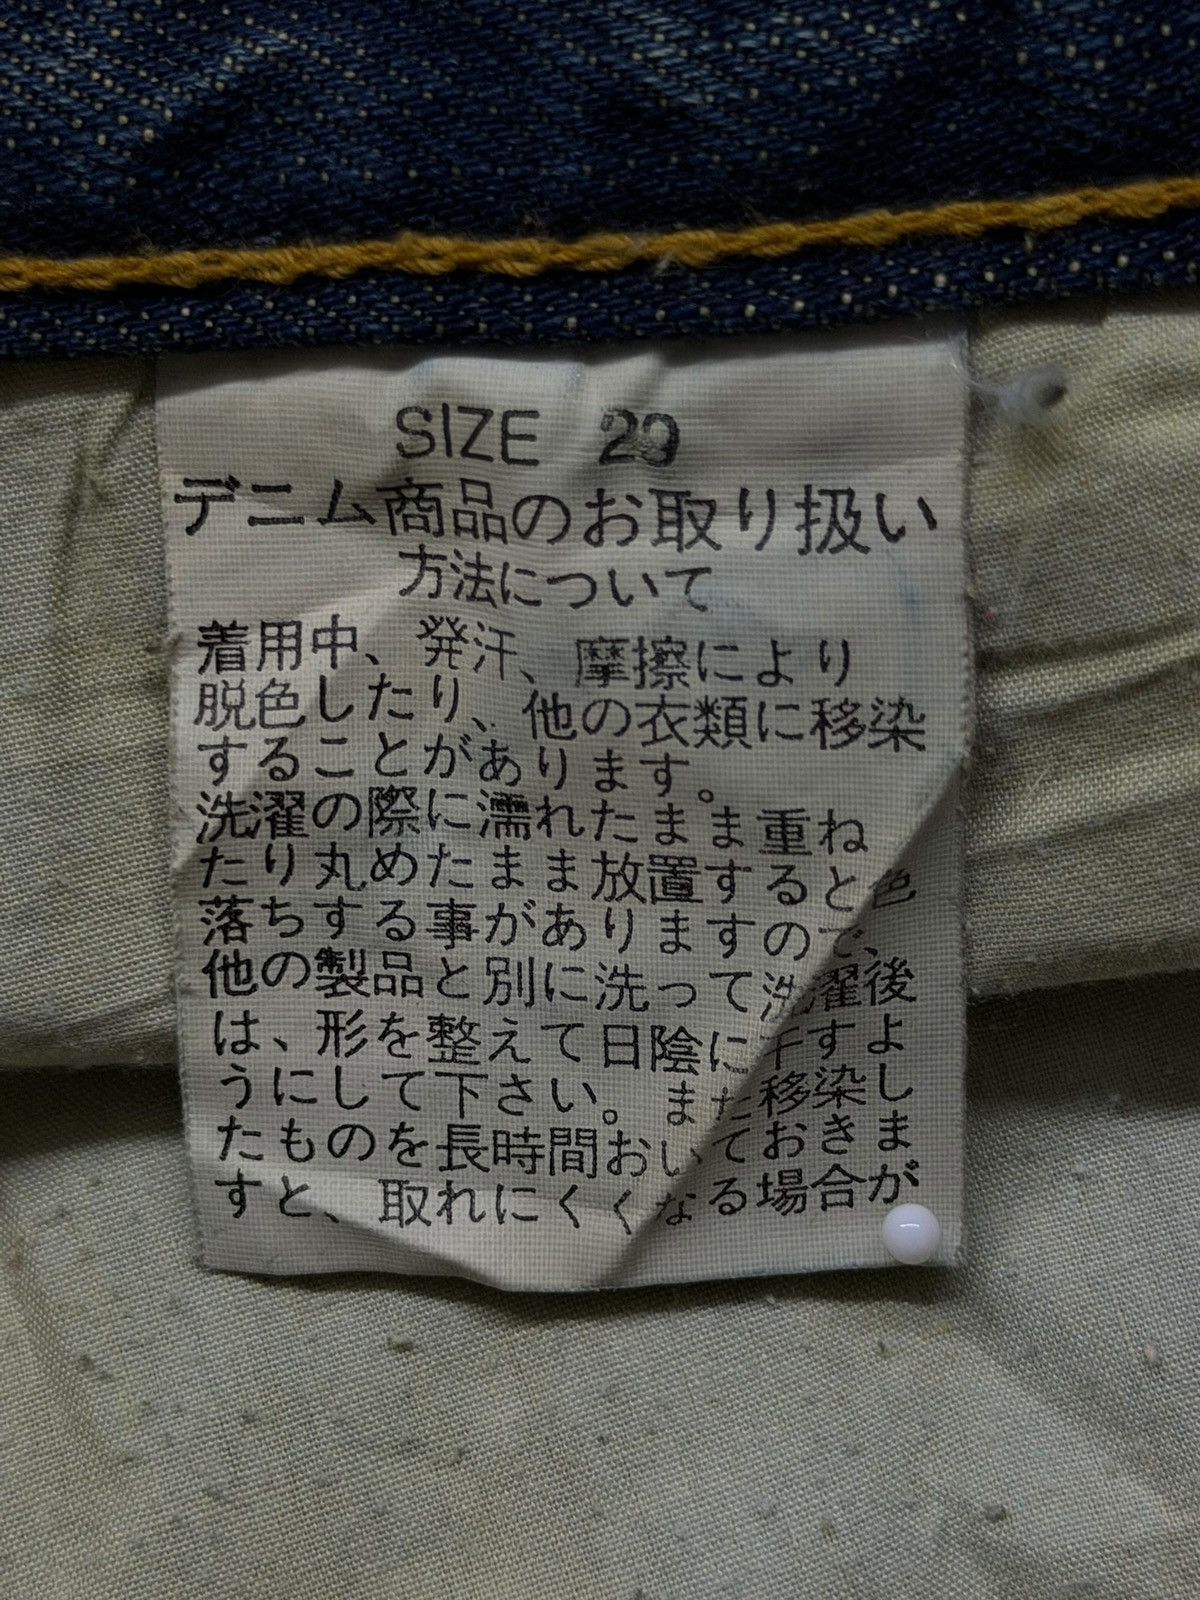 SIZE 29
デニム商品のお取り扱い
方法について
着用中、発汗、摩擦により
脱色したり、他の衣類に移染
することがあります。
洗濯の際に濡れたまま重ね
たり丸めたまま放置すると色
落ちする事がありますので、
他の製品と別に洗って洗濯後
は、形を整えて日陰に干すよ
うにして下さい。また移染し
たものを長時間おいておきま
すと、取れにくくなる場合が